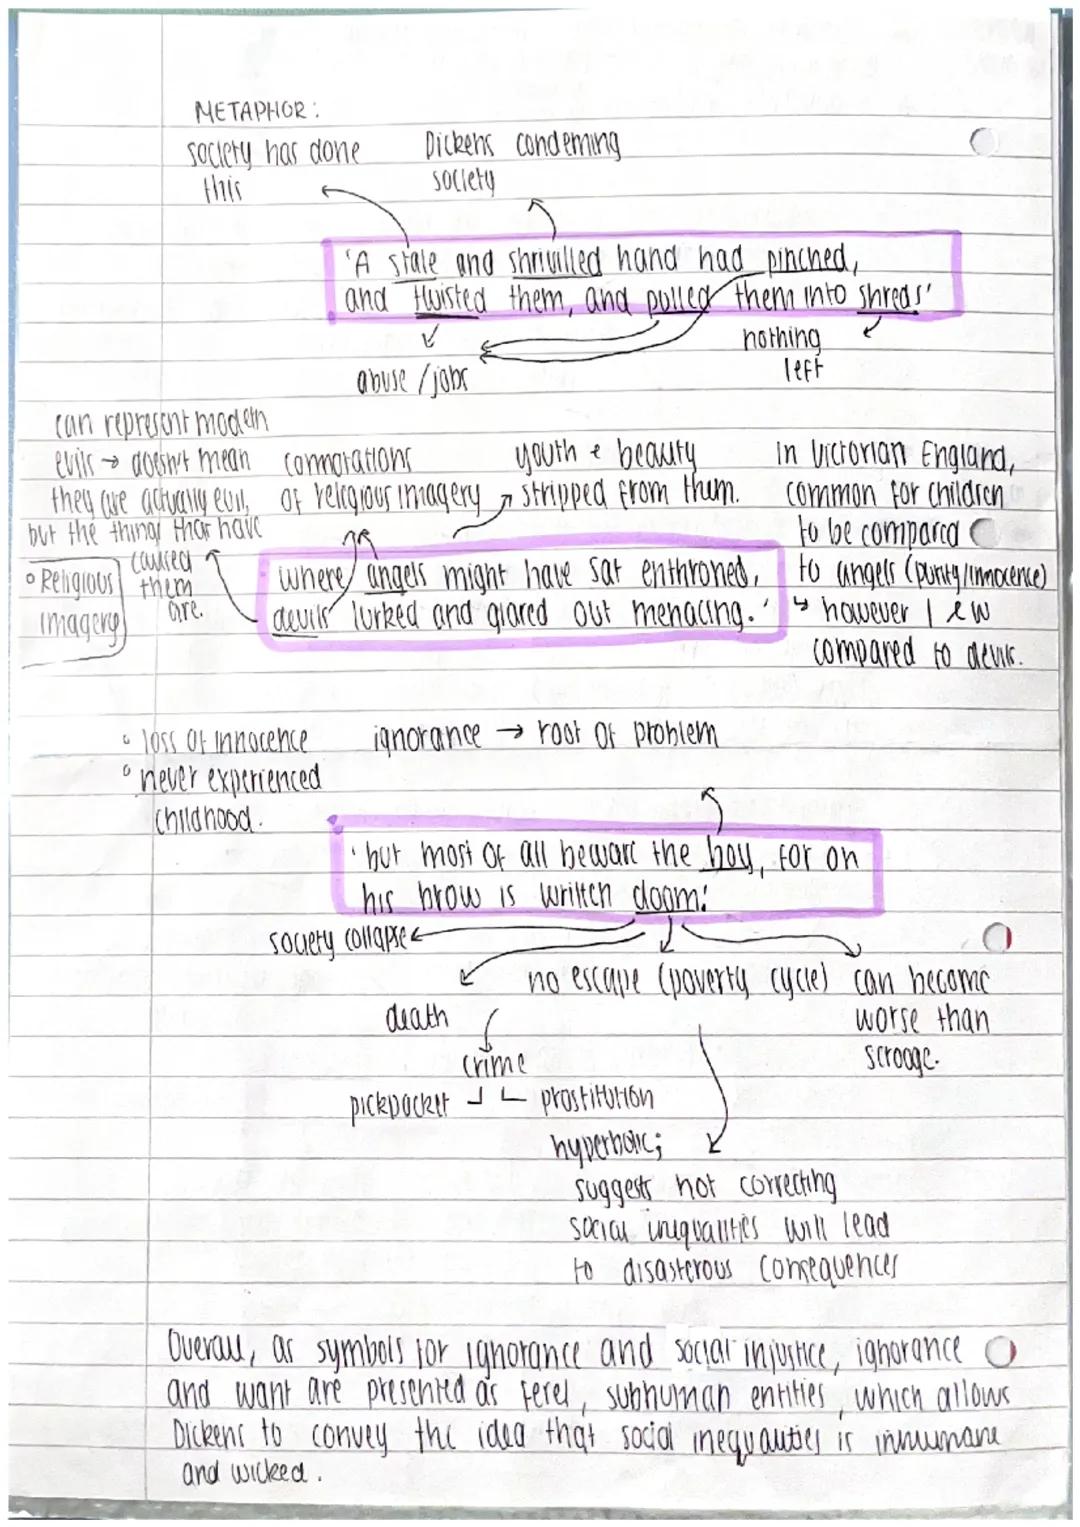 METAPHOR:
society has done
this
Dickens condeming
society
'A stale and shrivilled hand had pinched,
and twisted them, and pulled them into shreds'
abuse / jobs
nothing
left
can represent modern
evils → doesn't mean
they are actually evil,
but the things that have
caused
them
are.
connotations
of religious imagery
youth & beauty
stripped from them.
in Victorian England,
common for children
to be compared
to angels (purity/innocence)
↳ however I & W
compared to devils.
° Religious
imagery
where angels might have sat enthroned,
devils lurked and glared out menacing.'
° loss of innocence
° never experienced
childhood.
ignorance → root of problem
'but most of all beware the boy, for on
his brow is written doom.'
society collapse
death
no escape (poverty cycle)
can become
worse than
scrooge.
crime
pickpocket
prostitution
hyperbolic;
suggests not correcting
social inequalities will lead
to disasterous consequences
Overall, as symbols for ignorance and social injustice, ignorance
and want are presented as ferel, subhuman entities, which allows
Dickens to convey the idea that social inequalities is inhumane
and wicked.